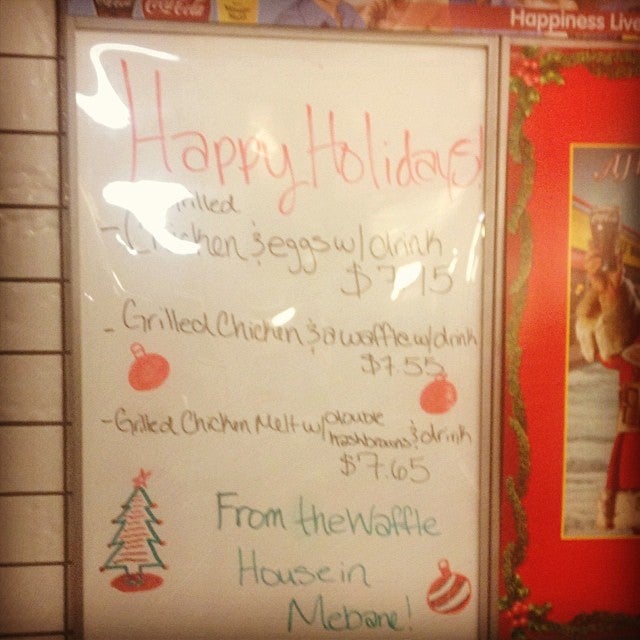 Coca-Cola
Happiness Live
Happy Holidays!
Grilled
- Chicken & eggs w/ drink
$7.15
- Grilled Chicken & a waffle w/ drink
$7.55
- Grilled Chicken Melt w/ double hashbrowns & drink
$7.65
From the Waffle
House in
Mebane!